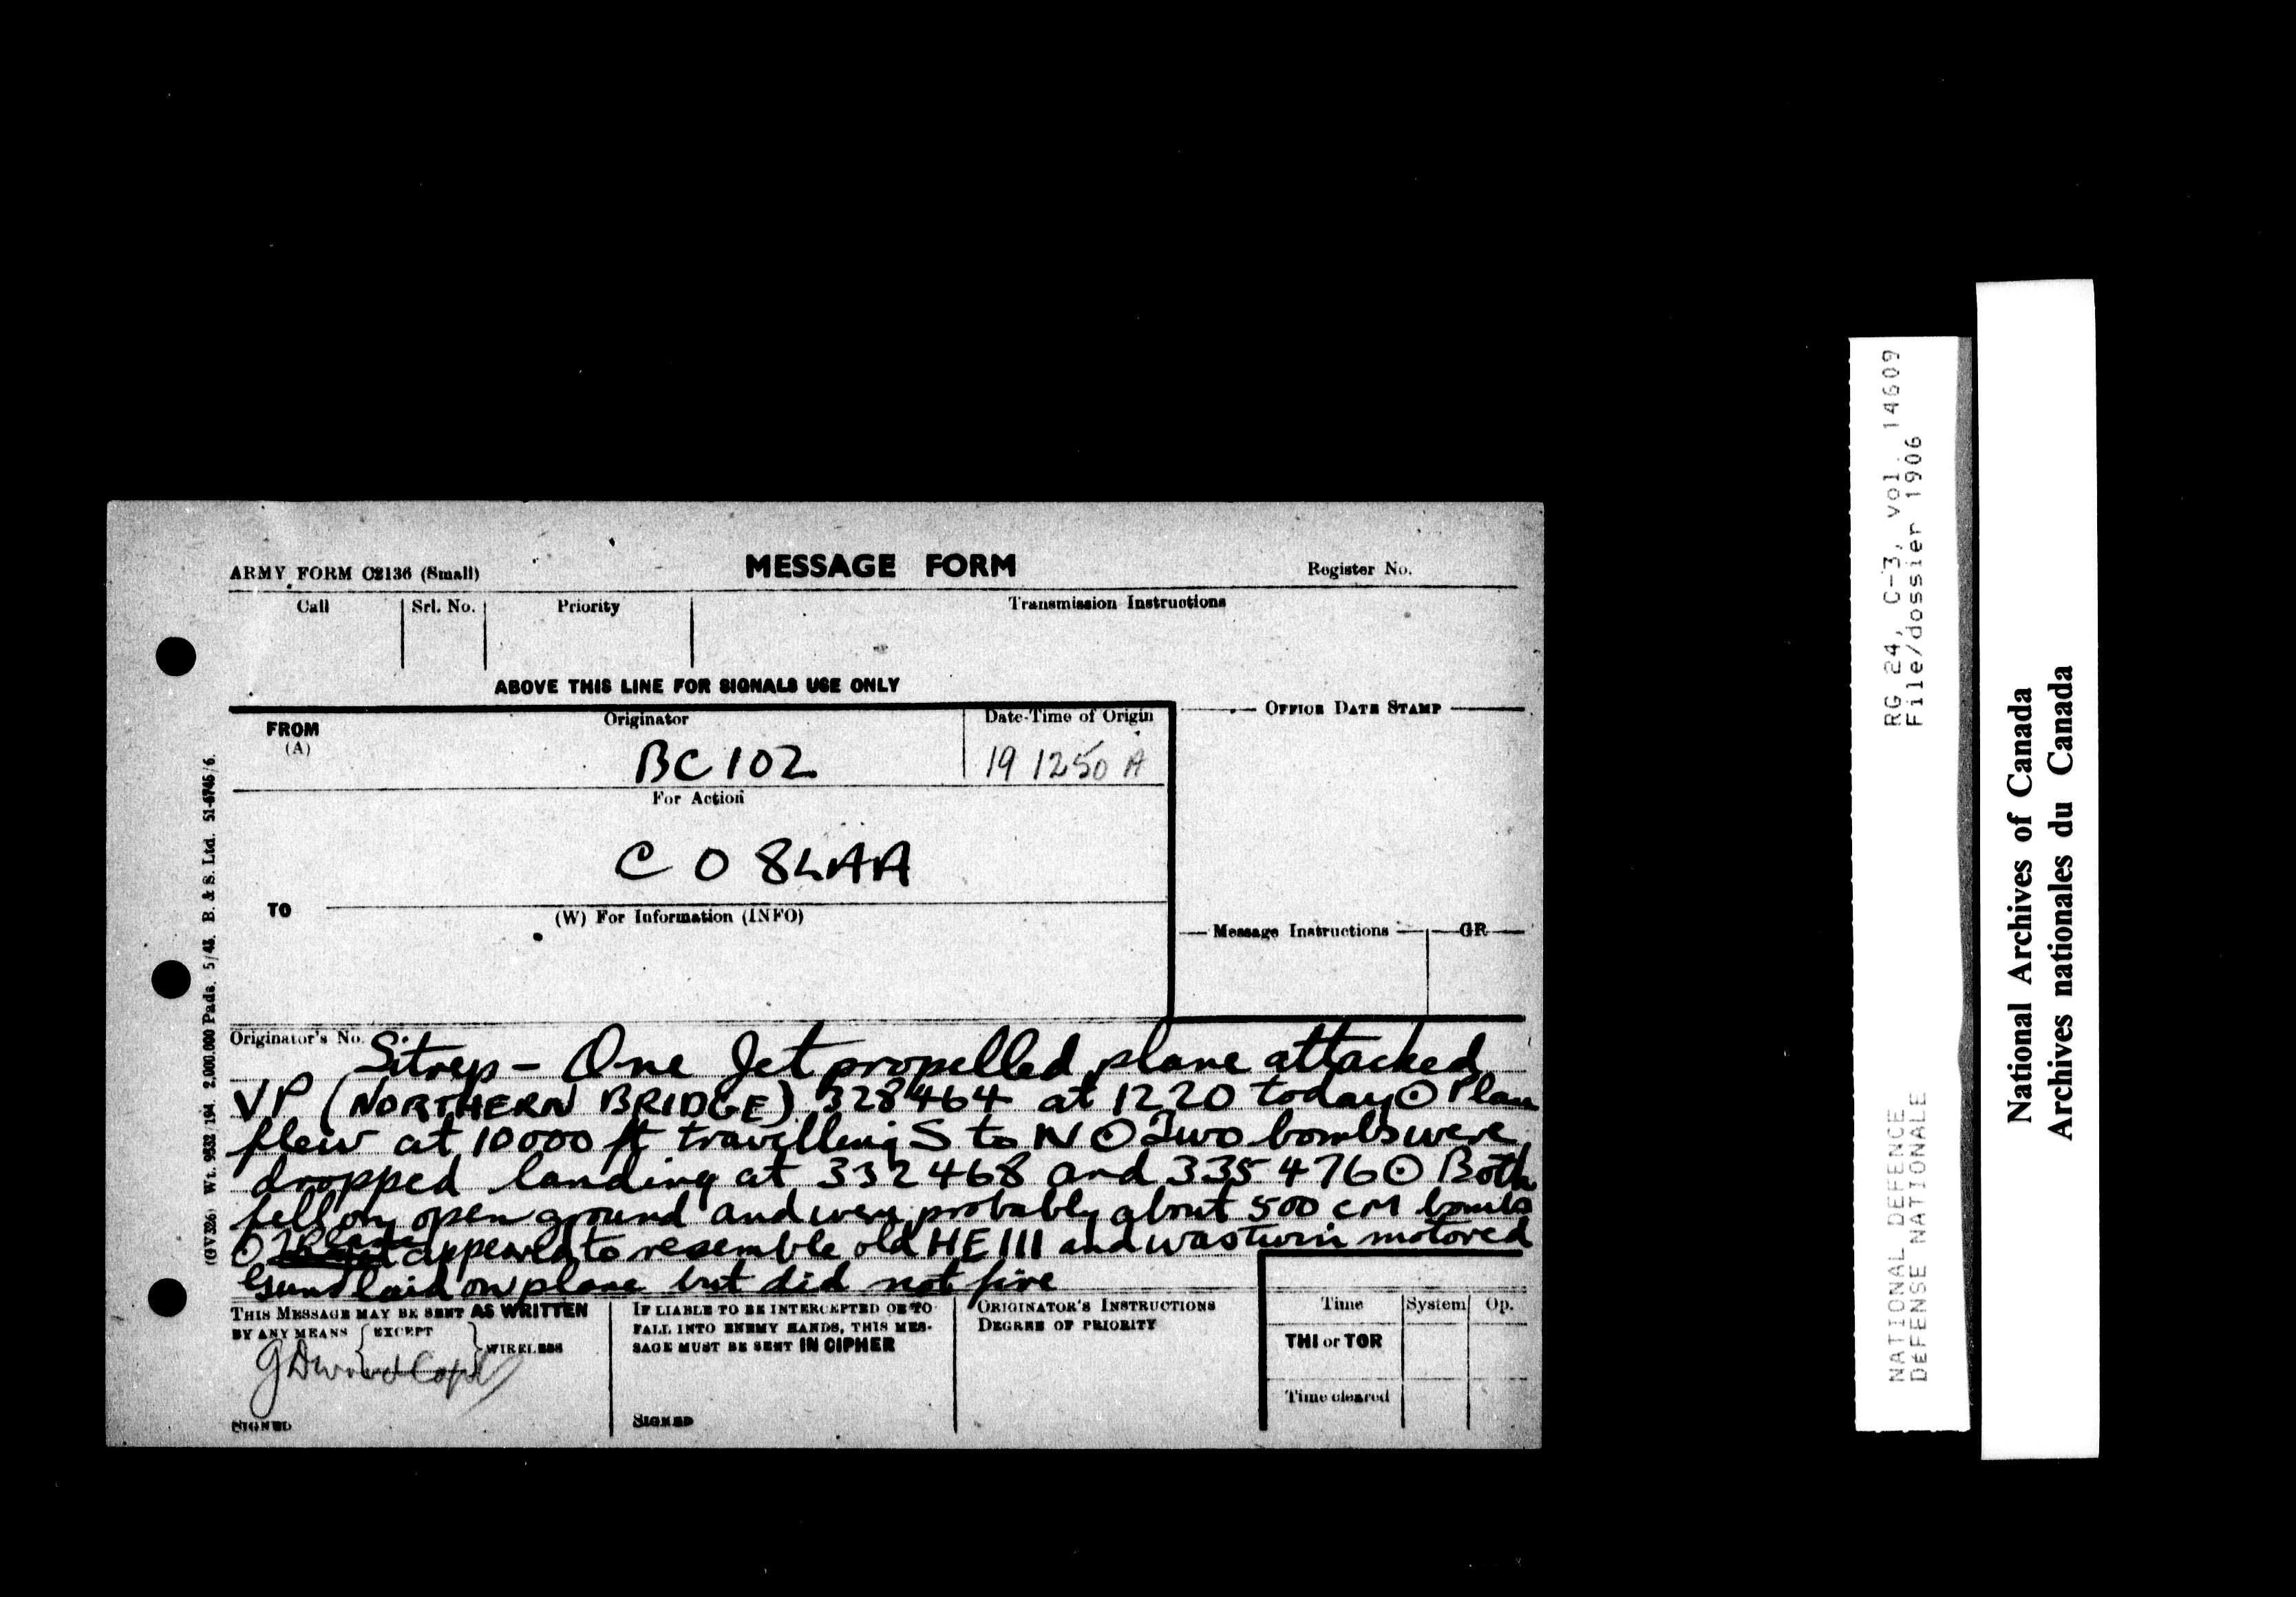 ARMY FORM C2136 (Small)
MESSAGE FORM
Register No.
Call
Srl. No.
Priority
Transmission Instructions
ABOVE THIS LINE FOR SIGNALS USE ONLY
FROM
(A)
Originator
Date-Time of Origin
OFFICE DATE STAMP
BC 102
19 1250 A
For Action
C O 8LAA
TO
(W) For Information (INFO)
Message Instructions
GR
Originator's No.
Sitrep - One Jet propelled plane attacked
VP (NORTHERN BRIDGE) 328464 at 1220 today ⊙ Plane
flew at 10000 ft travelling S to N ⊙ Two bombs were
dropped landing at 332468 and 335476 ⊙ Both
fell on open ground and were probably about 500 cm bombs
⊙ Plane appeared to resemble old HE 111 and was twin motored
Guns laid on plane but did not fire
THIS MESSAGE MAY BE SENT AS WRITTEN
BY ANY MEANS { EXCEPT } WIRELESS
SIGNED
IF LIABLE TO BE INTERCEPTED OR TO
FALL INTO ENEMY HANDS, THIS MES-
SAGE MUST BE SENT IN CIPHER
SIGNED
ORIGINATOR'S INSTRUCTIONS
DEGREE OF PRIORITY
Time
System
Op.
THI or TOR
Time cleared
Wt. 9532/194 2,000,000 Pads. 5/43. B. & S. Ltd. 51-5745/6.
RG 24, C-3, vol. 14609
File/dossier 1906
NATIONAL DEFENCE
DÉFENSE NATIONALE
National Archives of Canada
Archives nationales du Canada